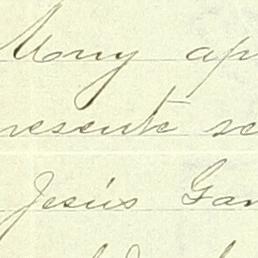 Mony ap
resente se
Jesús Gar